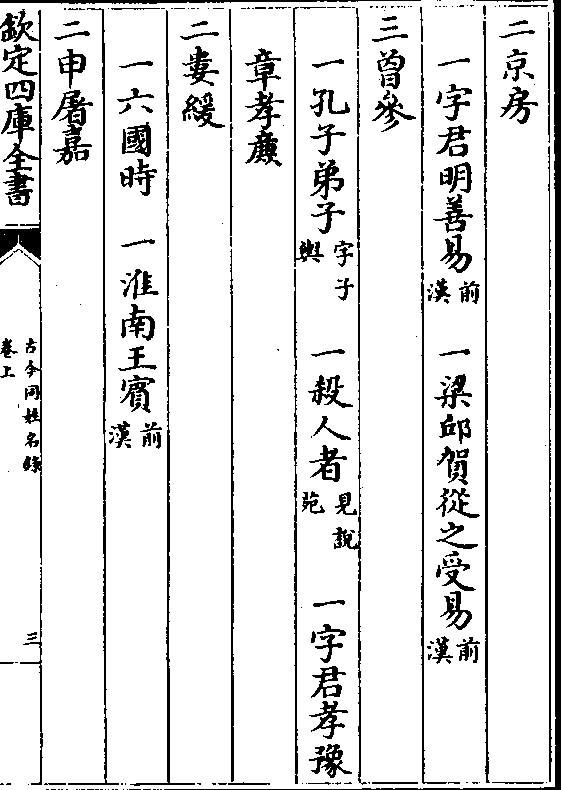 二京房
一字君明善易前漢 一梁邱賀從之受易前漢
三曾參
一孔子弟子字子輿 一殺人者見說苑 一字君孝豫
章孝廉
二婁緩
一六國時 一淮南王賓前漢
二申屠嘉
欽定四庫全書
古今同姓名錄
卷上
三